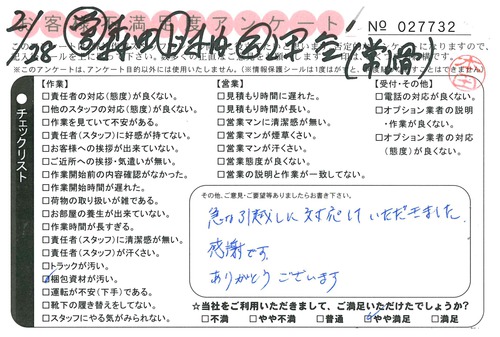 お客さま不満足度アンケート
No 027732
2/28
チェックリスト
【作業】
□責任者の対応(態度)が良くない。
□他のスタッフの対応(態度)が良くない。
□作業を見ていて不安がある。
□責任者(スタッフ)に好感が持てない。
□お客様への挨拶が出来ていない。
□ご近所への挨拶・気遣いが無い。
□作業開始前の内容確認がなかった。
□作業開始時間が遅れた。
□荷物の取り扱いが雑である。
□お部屋の養生が出来ていない。
□作業時間が長すぎる。
□責任者(スタッフ)に清潔感が無い。
□責任者(スタッフ)が汗くさい。
□トラックが汚い。
梱包資材が汚い。
□運転が不安(下手)である。
□靴下の履き替えをしてない。
□スタッフにやる気がみられない。
【営業】
□見積もり時間に遅れた。
□見積もり時間が長い。
□営業マンに清潔感が無い。
□営業マンが煙草くさい。
□営業マンが汗くさい。
□営業態度が良くない。
□営業の説明と作業が一致してない。
【受付・その他】
□電話の対応が良くない。
□オプション業者の説明
・作業が良くない。
□オプション業者の対応
(態度)が良くない。
その他、ご意見・ご要望等ありましたらお書き下さい。
急な引越しに対応していただきました。
感謝です。
ありがとうございます
☆当社をご利用いただきまして、ご満足いただけたでしょうか?
□不満 □やや不満 □普通 □やや満足 □満足